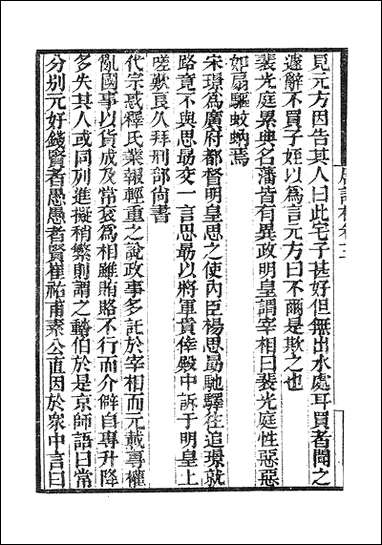 見元方因告其人曰此宅子甚好但無出水處耳買者聞之
遽辭不買子姪以爲言元方曰不爾是欺之也
裴光庭累典名藩皆有異政明皇謂宰相曰裴光庭性惡惡
如扇驅蚊蚋焉
宋璟爲廣府都督明皇思之使內臣楊思勗馳驛往追璟就
路竟不與思勗交一言思勗以將軍貴倖殿中訴于明皇上
嗟歎良久拜刑部尚書
代宗惑釋氏業報輕重之說政事多託於宰相而元載專權
亂國事以貨成及常袞爲相雖賄賂不行而介僻自專升降
多失其人或同列進擬稍繁則謂之䵬伯於是京師語曰常
分別元好錢賢者愚愚者賢崔祐甫素公直因於衆中言曰